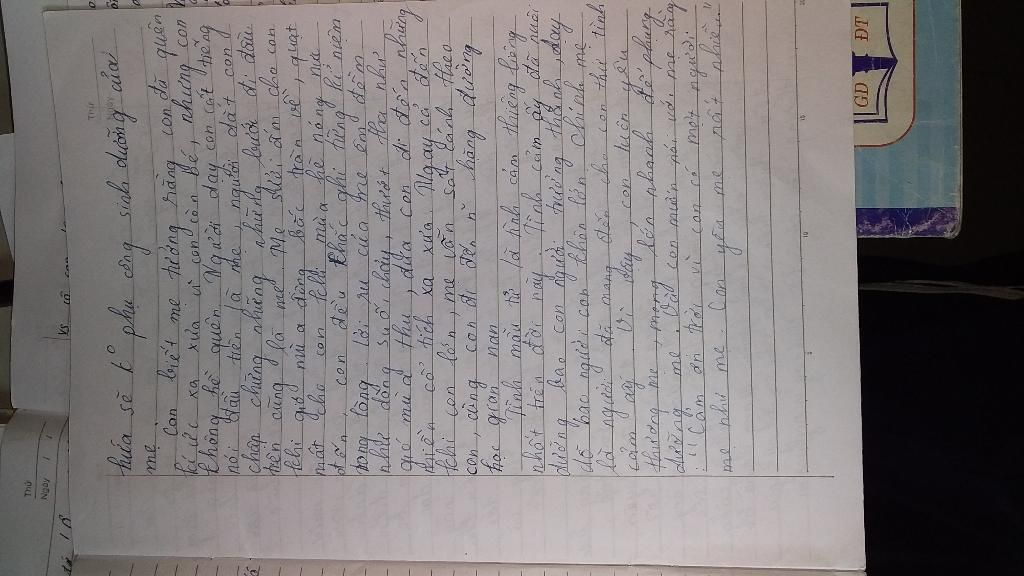 hứa sẽ k° phụ công sinh dưỡng của
mẹ.
Con biết mẹ tưởng rằng con đã quên
kí ức xa xưa vì con bé, nhưng con
không hề quên. Người dạy con cất tiếng
nói đầu tiên là mẹ, người dắt con
chập chững những bước đi đầu
tiên cũng là mẹ. Mẹ sưởi ấm cho con
khi gió mùa đông bắc tràn về, quạt
mát cho con khi mùa hè nóng nực
đến, con đều khắc ghi từng kỉ niệm
trong lòng. Lời ru của mẹ êm đềm
như dòng suối chảy, thiết tha như
gió mùa thu, đưa con đi đến những
miền cổ tích xa xưa. Ngay cả đến
khi con lớn, mẹ vẫn sát cánh theo
con, cùng con đi đến n~ chặng đường
gian nan.
Tình mẫu tử là tình cảm thiêng liêng
nhất trên đời này. Tình cảm ấy đã nuôi
dưỡng bao con người trưởng thành, dạy
dỗ bao người con khôn lớn, chính mẹ
là người đã mang đến cho con thứ tình
cảm ấy. Vì vậy con luôn yêu
thương mẹ, mong lớn nhanh để phụng
dưỡng mẹ. Và con muốn nói với mẹ rằng
"Cảm ơn trời vì con có một người
mẹ như mẹ. Con yêu mẹ rất nhiều"
Thứ
Ngày
Thứ
Ngày
GD
ĐT